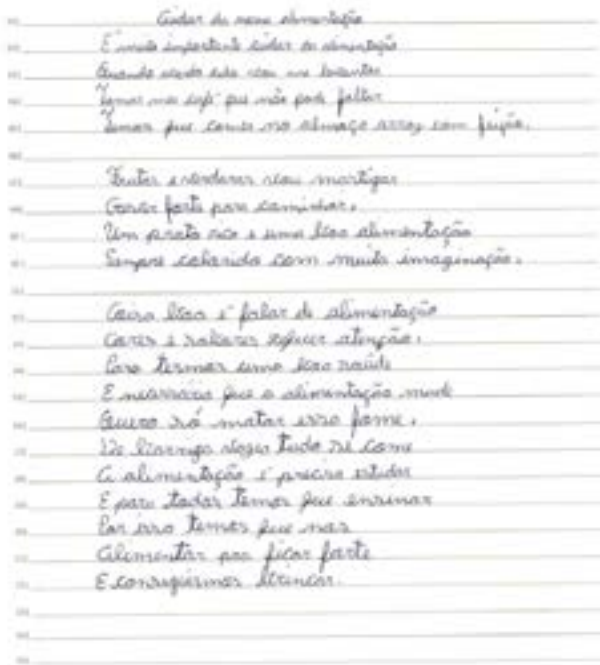 Cuidar da nossa alimentação
É muito importante cuidar da alimentação
Quando acordo cedo vou me levantar
Tomar meu café que não pode faltar
Temos que comer no almoço arroz com feijão.
Frutas e verduras vou mastigar
Ficar forte para caminhar.
Um prato rico é uma boa alimentação
Sempre colorido com muita imaginação.
Coisa boa é falar de alimentação
Cores e sabores requer atenção.
Para termos uma boa saúde
É necessário que a alimentação mude
Quero só matar essa fome.
De barriga vazia tudo se come
A alimentação é preciso estudar
E para todos temos que ensinar
Por isso temos que nos
Alimentar pra ficar forte
E conseguirmos brincar.